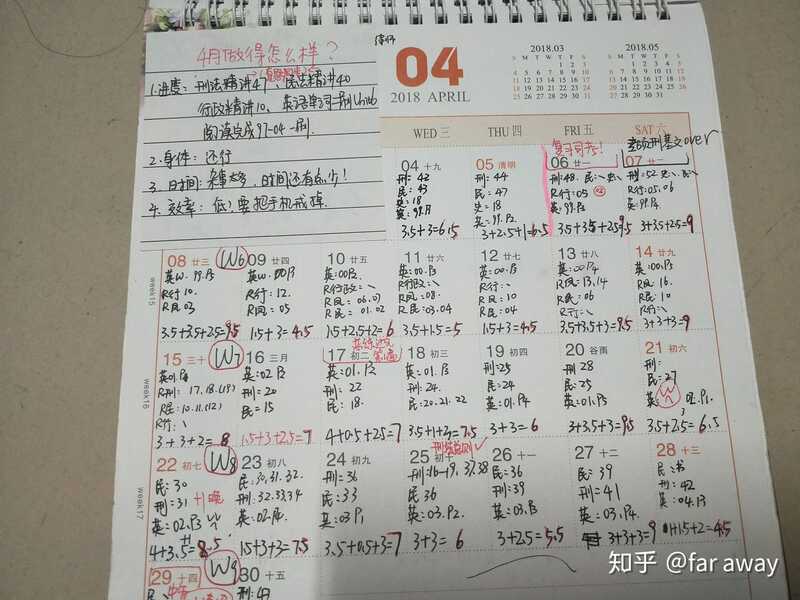 4月做得怎么样?
1.进度: 刑法精讲47、民法精讲40
行政精讲10、英语单词一刷Unit6
阅读完成97-04一刷.
2.身体: 还行
3.时间: 杂事太多, 时间还有点少!
4.效率: 低! 要把手机戒掉.
04
2018 APRIL
2018.03
S M T W T F S
1 2 3
4 5 6 7 8 9 10
11 12 13 14 15 16 17
18 19 20 21 22 23 24
25 26 27 28 29 30 31
2018.05
S M T W T F S
1 2 3 4 5
6 7 8 9 10 11 12
13 14 15 16 17 18 19
20 21 22 23 24 25 26
27 28 29 30 31
WED 三 THU 四 FRI 五 SAT 六
复习司考!
over
04 十九
刑: 42
民: 43
史: 18
英: 99.P1
3.5+3=6.5
05 清明
刑: 44
民: 47
史: 18
英: 99.P2
3+2.5+1=6.5
06 廿一
刑: 48.
R行: 05
英: 99.P3
3.5+3.5+2.5=9.5
07 廿二
刑: 52
R行: 05.06
英: 99.P4
3+3.5+2.5=9
week15
08 廿三 W6
英W. 99.P5
R行 10.
R民 03
3.5+3.5+2.5=9.5
09 廿四
R行: 12.
R民: 05
1.5+3=4.5
10 廿五
英: 00.P2.
R行政: \
R民: 01.02
1.5+2.5+2=6
11 廿六
英: 00.P3
R行政: \
R民: 03.04
3.5+1.5=5
12 廿七
英: 00.P3
R行: \
R民: 04
1.5+3=4.5
13 廿八
英: 00.P4
R民: 06
R行: \
3+3.5+3=9.5
14 廿九
英: 00.P5
R民: 10
R行: \
3+3+3=9
week16
15 三十 W7
英01.P1
R刑: 17.18.(19)
R民: 10.11.(12)
R行: \
3+3+2=8
16 三月
英: 02.P3
刑: 20
民: 15
1.5+3+2.5=7
17 初二
英: 01.P2
刑: 22
民: 18.
4+0.5+2.5=7
18 初三
英: 01.P3
刑: 24.
民: 20.21.22
3.5+1+3=7.5
19 初四
刑: 25
民: 24.
英: 01.P4
3+3=6
20 谷雨
刑 28
民: 25
英: 01.P5
3+3.5+3=9.5
21 初六
刑:
民: 27
英: 02.P1.
3.5+2.5=6.5
week17
22 初七 W8
民: 30
刑: 31
英: 02.P3
4+3.5=8.5
23 初八
民: 30.31.32
刑: 32.33.34
英: 02.P4.
1.5+3+3=7.5
24 初九
刑: 36
民: 33
英: 03.P1
3.5+0.5+3=7
25 初十
刑: 16-19.37.38
民 36
英: 03.P2.
3+3=6
26 十一
民: 36
刑: 39
英: 03.P3
3+2.5=5.5
27 十二
民: 39
刑: 41
英: 03.P4.
3+3+3=9
28 十三
刑: 42
英: 04.P3
1+1.5+2=4.5
29 十四 W9
民:
30 十五
刑: 47
知乎 @far away